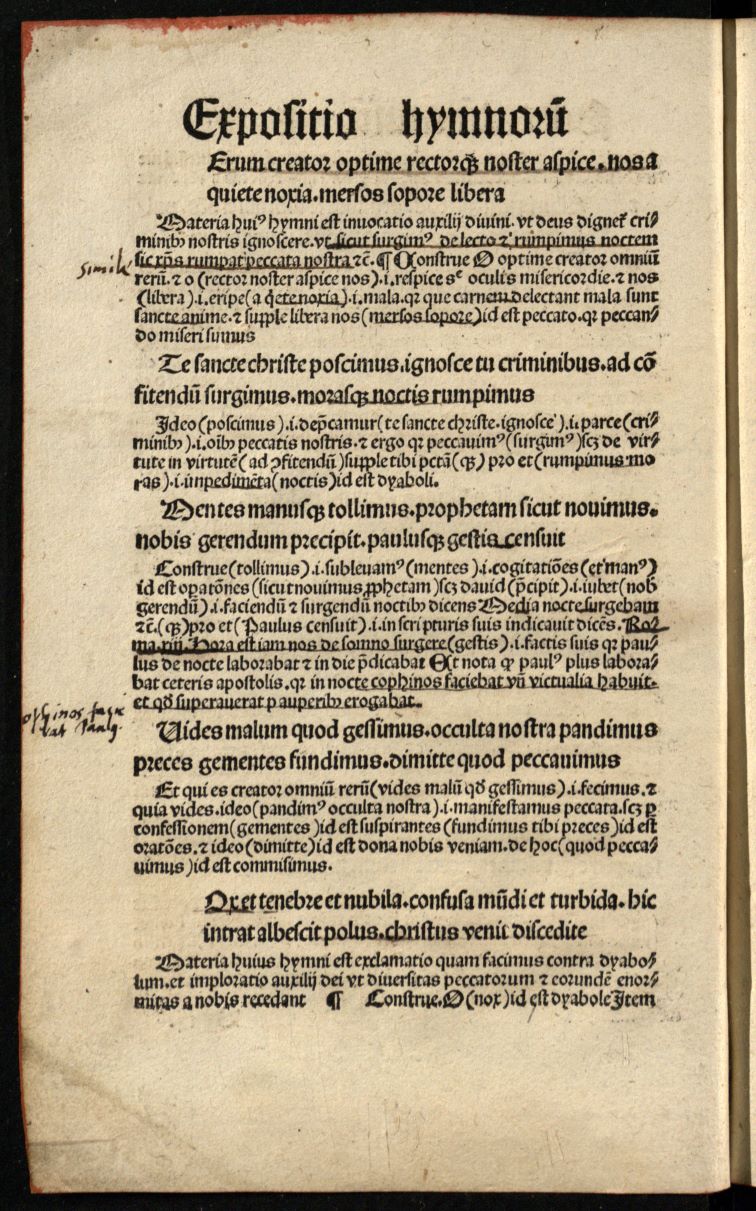 Expositio hymnorū
Erum creator optime rectorqꝫ noster aspice. nos a
quiete noxia. mersos sopore libera
Materia huiꝰ hymni est inuocatio auxilij diuini. vt deus dignet᷑ cri⸗
minibꝫ nostris ignoscere. vt sicut surgimꝰ de lecto ⁊ rumpimus noctem
sic xp̄s rumpat peccata nostra ⁊c̄. ¶ Construe O optime creator omniū
rerū. ⁊ o (rector noster aspice nos) .i. respice sᶜ oculis misericordie. ⁊ nos
(libera) .i. eripe (a q̇ete noxia) .i. mala. qꝛ que carnem delectant mala sunt
sancte anime. ⁊ supple libera nos (mersos sopore) id est peccato. qꝛ peccan⸗
do miseri sumus
Te sancte christe poscimus. ignosce tu criminibus. ad cō
fitendū surgimus. morasqꝫ noctis rumpimus
Ideo (poscimus) .i. dep̄camur (te sancte christe. ignosce) .i. parce (cri⸗
minibꝫ) .i. oībꝫ peccatis nostris. ⁊ ergo qꝛ peccauimꝰ (surgimꝰ) scꝫ de vir⸗
tute in virtutē (ad ꝯfitendū) supple tibi pctā (qꝫ) pro et (rumpimus mo
ras) .i. impedimēta (noctis) id est dyaboli.
Mentes manusqꝫ tollimus. prophetam sicut nouimus.
nobis gerendum precipit. paulusqꝫ gestis censuit
Construe (tollimus) .i. subleuamꝰ (mentes) .i. cogitatiōes (et manꝰ)
id est oꝑatōnes (sicut nouimus ꝓphetam) scꝫ dauid (p̄cipit) .i. iubet (nob̄
gerendū) .i. faciendū ⁊ surgendū noctibꝫ dicens Media nocte surgebam
⁊c̄. (qꝫ) pro et (Paulus censuit) .i. in scripturis suis indicauit dicēs. Ro⸗
ma. xiij. Hora est iam nos de somno surgere (gestis) .i. factis suis qꝛ pau⸗
lus de nocte laborabat ⁊ in die p̄dicabat Et nota ꝙ paulꝰ plus labora⸗
bat ceteris apostolis. qꝛ in nocte cophinos faciebat vn̄ victualia habuit.
et qď superauerat pauperibꝫ erogabat.
Uides malum quod gessimus. occulta nostra pandimus
preces gementes fundimus. dimitte quod peccauimus
Et qui es creator omniū rerū (vides malū qď gessimus) .i. fecimus. ⁊
quia vides. ideo (pandimꝰ occulta nostra) .i. manifestamus peccata. scꝫ ꝑ
confessionem (gementes) id est suspirantes (fundimus tibi preces) id est
oratōes. ⁊ ideo (dimitte) id est dona nobis veniam. de hoc (quod pecca⸗
uimus) id est commisimus.
Ox et tenebre et nubila. confusa mūdi et turbida. hic
intrat albescit polus. christus venit discedite
Materia huius hymni est exclamatio quam facimus contra dyabo⸗
lum. et imploratio auxilij dei vt diuersitas peccatorum ⁊ eorundē enor⸗
mitas a nobis recedant ¶ Construe. O (nox) id est dyabole Item
simile